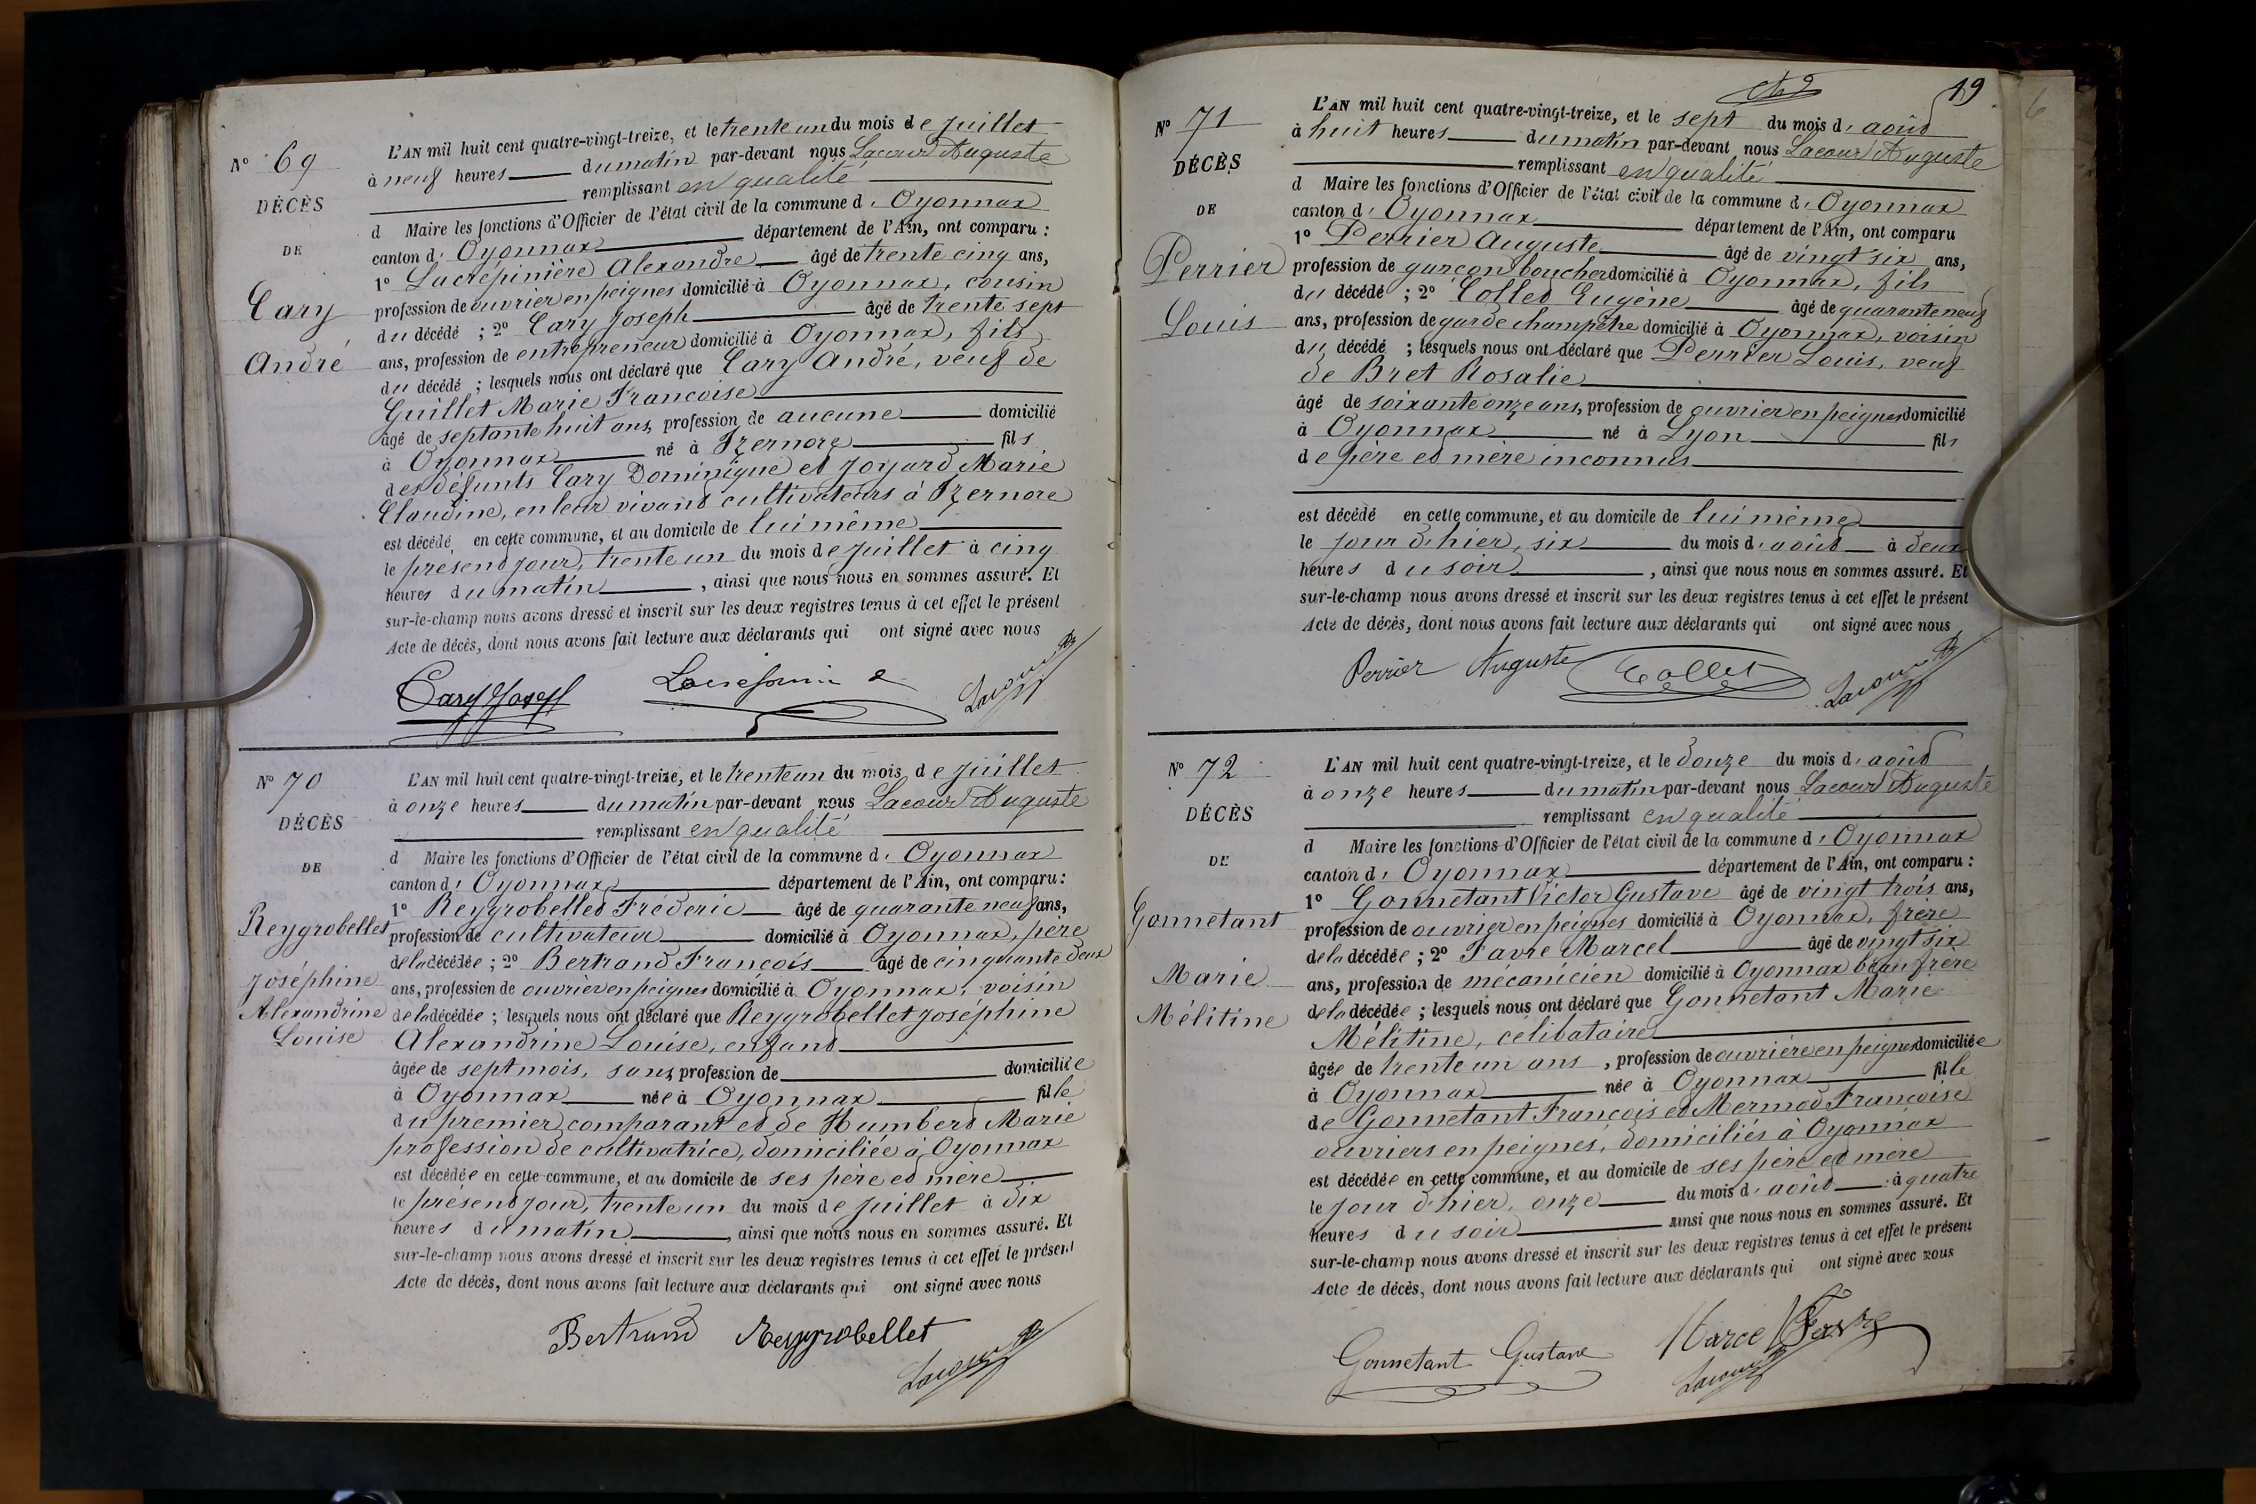 N° 69
DÉCÈS
DE
Cary
André
L'AN mil huit cent quatre-vingt-treize, et le trente un du mois de juillet
à neuf heures du matin par-devant nous Lacour Auguste
remplissant en qualité
d Maire les fonctions d'Officier de l'état civil de la commune d'Oyonnax
canton d'Oyonnax département de l'Ain, ont comparu :
1° Lacrépinière Alexandre âgé de trente cinq ans,
profession de ouvrier en peignes domicilié à Oyonnax, cousin
du décédé ; 2° Cary Joseph âgé de trente sept
ans, profession de entrepreneur domicilié à Oyonnax, fils
du décédé ; lesquels nous ont déclaré que Cary André, veuf de
Guillet Marie Françoise
âgé de septante huit ans, profession de aucune domicilié
à Oyonnax né à Izernore fils
des défunts Cary Dominique et Joyard Marie
Claudine, en leur vivant cultivateurs à Izernore
est décédé en cette commune, et au domicile de lui même
le présent jour, trente un du mois de juillet à cinq
heures du matin, ainsi que nous nous en sommes assuré. Et
sur-le-champ nous avons dressé et inscrit sur les deux registres tenus à cet effet le présent
Acte de décès, dont nous avons fait lecture aux déclarants qui ont signé avec nous
Cary Joseph
Lacour
N° 70
DÉCÈS
DE
Reygrobellet
Joséphine
Alexandrine
Louise
L'AN mil huit cent quatre-vingt-treize, et le trente un du mois de juillet
à onze heures du matin par-devant nous Lacour Auguste
remplissant en qualité
d Maire les fonctions d'Officier de l'état civil de la commune d'Oyonnax
canton d'Oyonnax département de l'Ain, ont comparu :
1° Reygrobellet Fréderic âgé de quarante neuf ans,
profession de cultivateur domicilié à Oyonnax, père
de la décédée ; 2° Bertrand François âgé de cinquante deux
ans, profession de ouvrier en peignes domicilié à Oyonnax, voisin
de la décédée ; lesquels nous ont déclaré que Reygrobellet Joséphine
Alexandrine Louise, enfant
âgée de sept mois, sans profession de domiciliée
à Oyonnax née à Oyonnax fille
du premier comparant et de Humbert Marie
profession de cultivatrice, domiciliée à Oyonnax
est décédée en cette commune, et au domicile de ses père et mère
le présent jour, trente un du mois de juillet à dix
heures du matin, ainsi que nous nous en sommes assuré. Et
sur-le-champ nous avons dressé et inscrit sur les deux registres tenus à cet effet le présent
Acte de décès, dont nous avons fait lecture aux déclarants qui ont signé avec nous
Bertrand Reygrobellet
Lacour
19
N° 71
DÉCÈS
DE
Perrier
Louis
L'AN mil huit cent quatre-vingt-treize, et le sept du mois d'août
à huit heures du matin par-devant nous Lacour Auguste
remplissant en qualité
d Maire les fonctions d'Officier de l'état civil de la commune d'Oyonnax
canton d'Oyonnax département de l'Ain, ont comparu
1° Perrier Auguste âgé de vingt six ans,
profession de garçon boucher domicilié à Oyonnax, fils
du décédé ; 2° Collet Eugène âgé de quarante neuf
ans, profession de garde champêtre domicilié à Oyonnax, voisin
du décédé ; lesquels nous ont déclaré que Perrier Louis, veuf
de Bret Rosalie
âgé de soixante onze ans, profession de ouvrier en peignes domicilié
à Oyonnax né à Lyon fils
de père et mère inconnus
est décédé en cette commune, et au domicile de lui même
le jour d'hier, six du mois d'août à deux
heures du soir, ainsi que nous nous en sommes assuré. Et
sur-le-champ nous avons dressé et inscrit sur les deux registres tenus à cet effet le présent
Acte de décès, dont nous avons fait lecture aux déclarants qui ont signé avec nous
Perrier Auguste Collet
Lacour
N° 72
DÉCÈS
DE
Gonnetant
Marie
Mélitine
L'AN mil huit cent quatre-vingt-treize, et le douze du mois d'août
à onze heures du matin par-devant nous Lacour Auguste
remplissant en qualité
d Maire les fonctions d'Officier de l'état civil de la commune d'Oyonnax
canton d'Oyonnax département de l'Ain, ont comparu :
1° Gonnetant Victor Gustave âgé de vingt trois ans,
profession de ouvrier en peignes domicilié à Oyonnax, frère
de la décédée ; 2° Favre Marcel âgé de vingt six
ans, profession de mécanicien domicilié à Oyonnax beau frère
de la décédée ; lesquels nous ont déclaré que Gonnetant Marie
Mélitine, célibataire
âgée de trente un ans, profession de ouvrière en peignes domiciliée
à Oyonnax née à Oyonnax fille
de Gonnetant François et Mermod Françoise
ouvriers en peignes, domiciliés à Oyonnax
est décédée en cette commune, et au domicile de ses père et mère
le jour d'hier, onze du mois d'août à quatre
heures du soir ainsi que nous nous en sommes assuré. Et
sur-le-champ nous avons dressé et inscrit sur les deux registres tenus à cet effet le présent
Acte de décès, dont nous avons fait lecture aux déclarants qui ont signé avec nous
Gonnetant Gustave Marcel Favre
Lacour